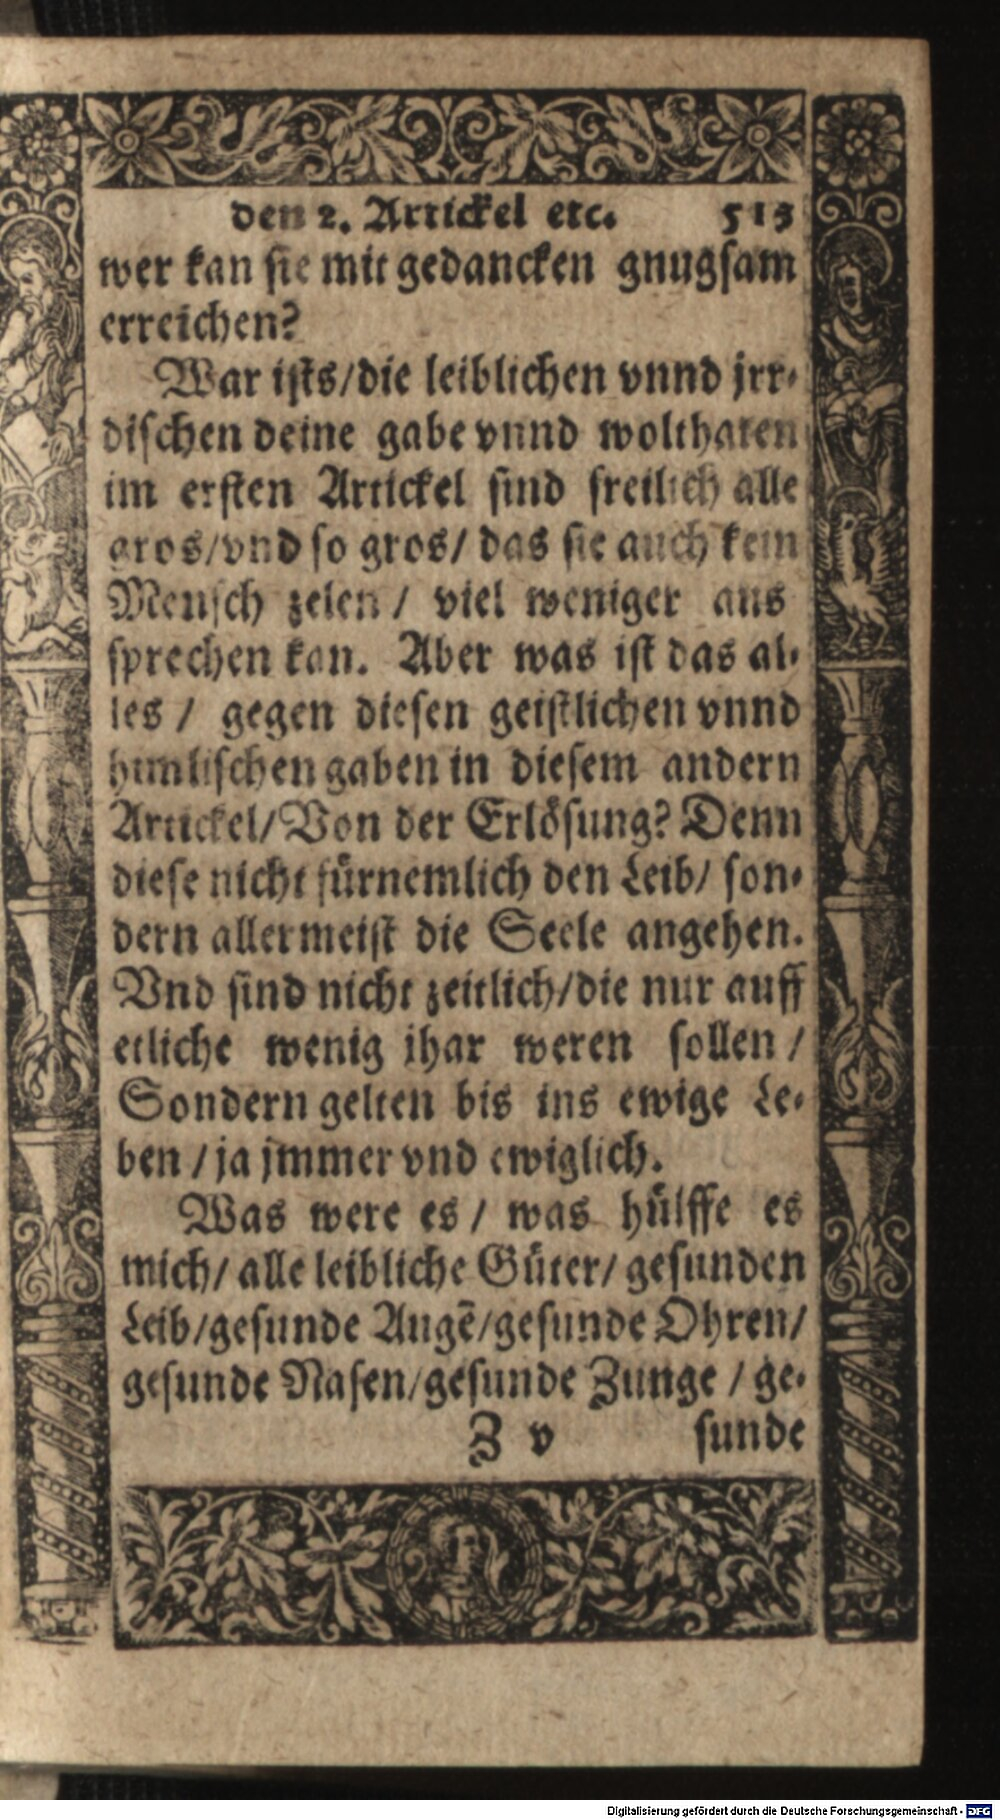 den 2. Artickel etc. 513
wer kan sie mit gedancken gnugsam
erreichen?
War ists/die leiblichen vnnd jrr-
dischen deine gabe vnnd wolthaten
im ersten Artickel sind freilich alle
gros/vnd so gros/ das sie auch kein
Mensch zelen / viel weniger aus
sprechen kan. Aber was ist das al-
les / gegen diesen geistlichen vnnd
himlischen gaben in diesem andern
Artickel/Von der Erlösung? Denn
diese nicht fürnemlich den Leib/ son-
dern allermeist die Seele angehen.
Vnd sind nicht zeitlich/die nur auff
etliche wenig jhar weren sollen /
Sondern gelten bis ins ewige Le-
ben / ja jmmer vnd ewiglich.
Was were es / was hülffe es
mich/ alle leibliche Güter/ gesunden
Leib/gesunde Augē/gesunde Ohren/
gesunde Nasen/gesunde Zunge / ge-
Z v sunde
Digitalisierung gefördert durch die Deutsche Forschungsgemeinschaft - DFG